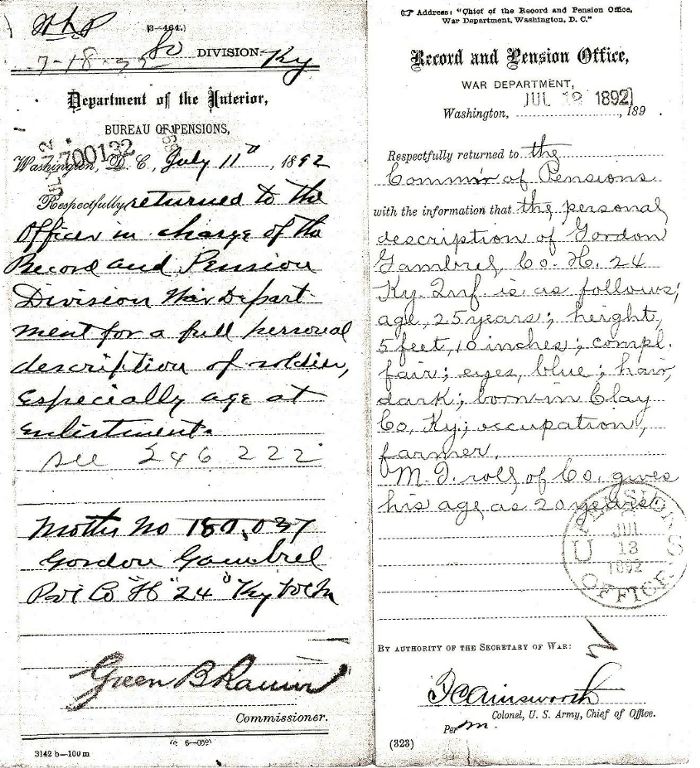 (3-464.)
7-18-92 So DIVISION. Ky
Department of the Interior,
BUREAU OF PENSIONS,
700132
Washington, D. C., July 11th, 1892
Respectfully returned to the
Officer in charge of the
Record and Pension
Division War Depart
ment for a full personal
description of soldier,
especially age at
enlistment.
see 246 222
Mothers No 180,037
Gordon Gambrel
Pvt Co "H" 24" Ky Vol
Green B Raum
Commissioner.
3142 b—100 m
☞ Address: "Chief of the Record and Pension Office,
War Department, Washington, D. C."
Record and Pension Office,
WAR DEPARTMENT,
Washington, JUL 12 1892, 189
Respectfully returned to the
Comm'r of Pensions
with the information that the personal
description of Gordon
Gambrel, Co. H. 24
Ky. Inf is as follows;
age, 25 years; height,
5 feet, 10 inches; compl.
fair; eyes, blue; hair,
dark; born in Clay
Co, Ky; occupation,
farmer.
M. I. roll of Co. gives
his age as 20 years.
U.S. PENSION OFFICE
JUL
13
1892
BY AUTHORITY OF THE SECRETARY OF WAR:
F C Ainsworth
Colonel, U. S. Army, Chief of Office.
Per m.
(323)